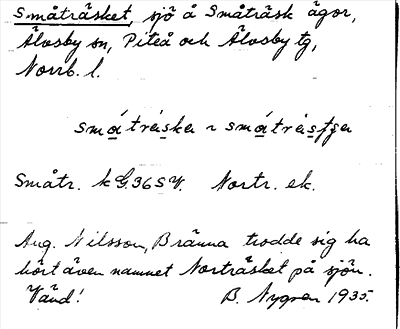 Småträsket, sjö å Småträsk ägor,
Älvsby sn, Piteå och Älvsby tg,
Norrb. l.
småtràska ~ småtràsfa
Småtr. k G.36 S V. Nortr. ek.
Aug. Nilsson, Bränna trodde sig ha
hört även namnet Norträsket på sjön.
Vänd! B. Nygren 1935.